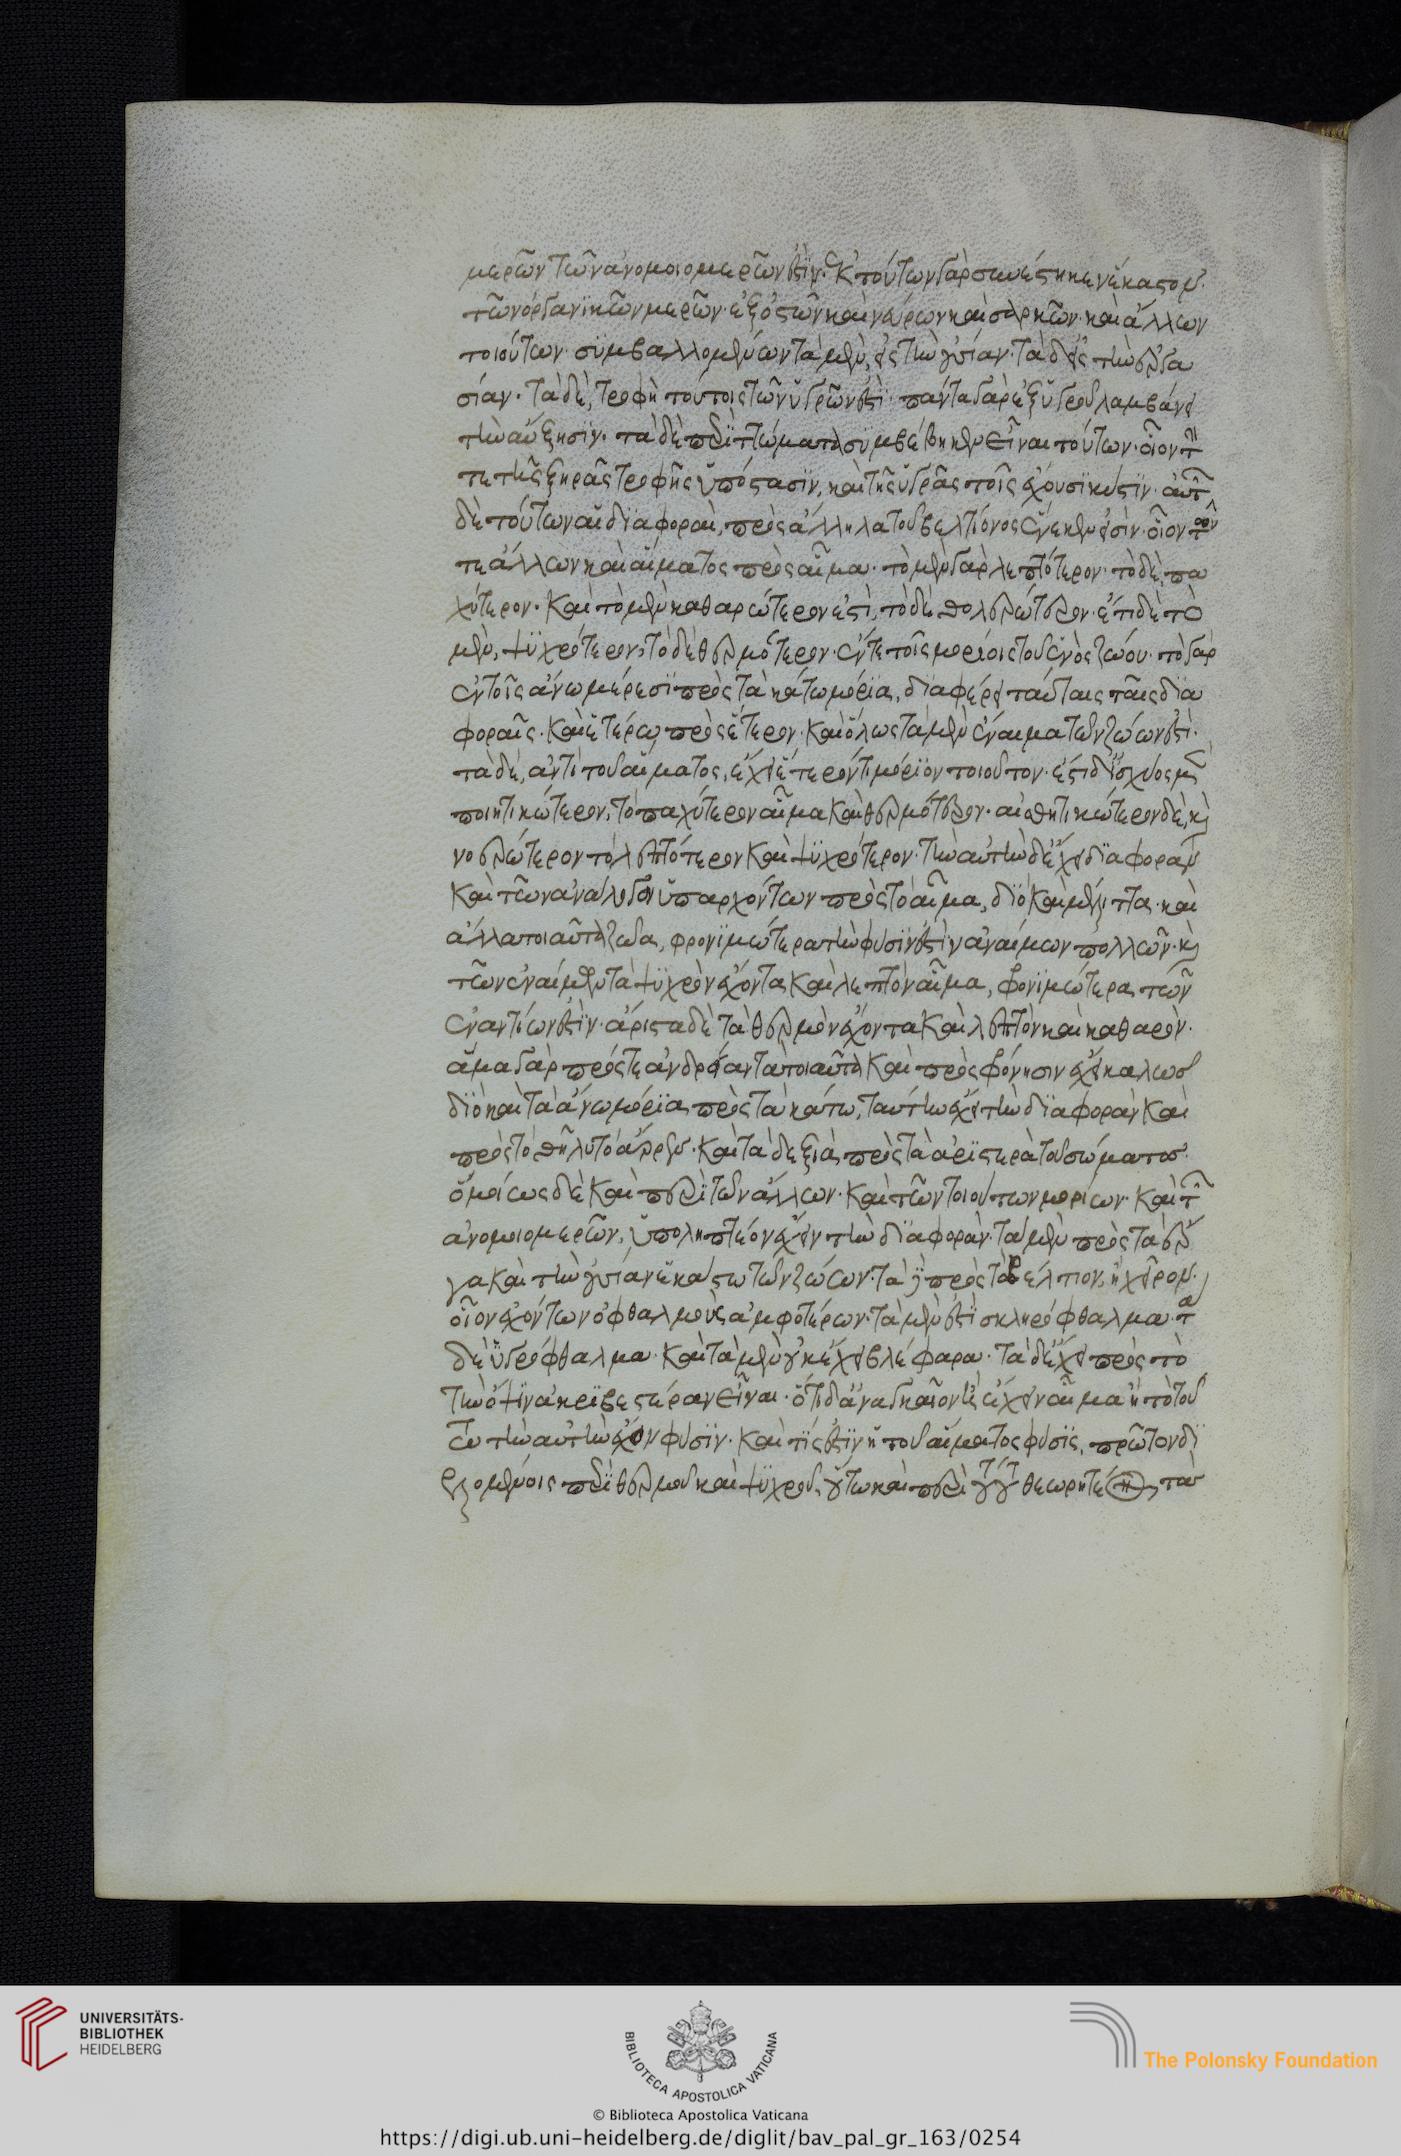 μερῶν τῶν ἀνομοιομερῶν ἐστίν· ἐκ τούτων γὰρ συνέστηκεν ἕκαστον
τῶν ὀργανικῶν μερῶν· ἐξ ὀστῶν καὶ νεύρων καὶ σαρκῶν· καὶ ἄλλων
τοιούτων συμβαλλομένων τὰ μὲν, εἰς τὴν οὐσίαν· τὰ δ' εἰς τὴν ἐργα
σίαν· τὰ δὲ, τροφὴ τούτοις τῶν ὑγρῶν ἐστί· πάντα γὰρ ἐξ ὑγροῦ λαμβάνει
τὴν αὔξησιν· τὰ δὲ περιττώματα συμβέβηκεν εἶναι τούτων· οἷον τήν
τε τῆς ξηρᾶς τροφῆς ὑπόστασιν, καὶ τῆς ὑγρᾶς τοῖς ἔχουσι κύστιν· αὐτῶν
δὲ τούτων αἱ διαφοραὶ, πρὸς ἄλληλα τοῦ βελτίονος ἕνεκεν εἰσὶν· οἷον τῶν
τε ἄλλων καὶ αἵματος πρὸς αἷμα· τὸ μὲν γὰρ λεπτότερον· τὸ δὲ, πα
χύτερον· καὶ τὸ μὲν καθαρώτερόν ἐστι, τὸ δὲ, θολερώτερον· ἔτι δὲ τὸ
μὲν, ψυχρότερον, τὸ δὲ θερμότερον· ἔν τε τοῖς μορίοις τοῦ ἑνὸς ζώου· τὸ γὰρ
ἐν τοῖς ἄνω μέρεσι πρὸς τὰ κάτω μόρια, διαφέρει ταύταις ταῖς δια
φοραῖς· καὶ ἑτέρῳ πρὸς ἕτερον· καὶ ὅλως τὰ μὲν ἔναιμα τῶν ζώων ἐστί·
τὰ δὲ, ἀντὶ τοῦ αἵματος, ἔχει ἕτερόν τι μόριον τοιοῦτον· ἔστι δ' ἰσχύος μὲν
ποιητικώτερον, τὸ παχύτερον αἷμα καὶ θερμότερον· αἰσθητικώτερον δὲ, καὶ
νοερώτερον τὸ λεπτότερον καὶ ψυχρότερον· τὴν αὐτὴν δ' ἔχει διαφορὰν
καὶ τῶν ἀνάλογον ὑπαρχόντων πρὸς τὸ αἷμα, διὸ καὶ μέλιτται· καὶ
ἄλλα τοιαῦτα ζῶα, φρονιμώτερα τὴν φύσιν ἐστὶν ἀναίμων πολλῶν· καὶ
τῶν ἐναίμων τὰ ψυχρὸν ἔχοντα καὶ λεπτὸν αἷμα, φρονιμώτερα τῶν
ἐναντίων ἐστίν· ἄριστα δὲ τὰ θερμὸν ἔχοντα καὶ λεπτὸν καὶ καθαρόν·
ἅμα γὰρ πρός τε ἀνδρείαν τὰ τοιαῦτα καὶ πρὸς φρόνησιν ἔχει καλῶς
διὸ καὶ τὰ ἄνω μόρια πρὸς τὰ κάτω, ταύτην ἔχει τὴν διαφορὰν καὶ
πρὸς τὸ θῆλυ τὸ ἄρρεν· καὶ τὰ δεξιὰ πρὸς τὰ ἀριστερὰ τοῦ σώματος·
ὁμοίως δὲ καὶ περὶ τῶν ἄλλων· καὶ τῶν τοιούτων μορίων· καὶ τῶν
ἀνομοιομερῶν, ὑποληπτέον ἔχειν τὴν διαφοράν· τὰ μὲν πρὸς τὰ ἔρ
γα καὶ τὴν οὐσίαν ἑκάστῳ τῶν ζώων· τὰ δὲ πρὸς τὸ βέλτιον, ἢ χεῖρον·
οἷον ἐχόντων ὀφθαλμοὺς ἀμφοτέρων· τὰ μὲν ἐστὶ σκληρόφθαλμα· τὰ
δὲ ὑγρόφθαλμα· καὶ τὰ μὲν οὐκ ἔχει βλέφαρα· τὰ δὲ ἔχει πρὸς τὸ
τὴν ὄψιν ἀκριβεστέραν εἶναι· ὅτι δ' ἀναγκαῖον ἔχειν αἷμα ἢ τὸ τού
τῳ τὴν αὐτὴν ἔχον φύσιν· καὶ τίς ἐστὶν ἡ τοῦ αἵματος φύσις, πρῶτον δι
ελομένοις περὶ θερμοῦ καὶ ψυχροῦ, οὕτω καὶ περὶ τούτου θεωρητέον τὴν
UNIVERSITÄTS-
BIBLIOTHEK
HEIDELBERG
BIBLIOTECA APOSTOLICA VATICANA
The Polonsky Foundation
© Biblioteca Apostolica Vaticana
https://digi.ub.uni-heidelberg.de/diglit/bav_pal_gr_163/0254